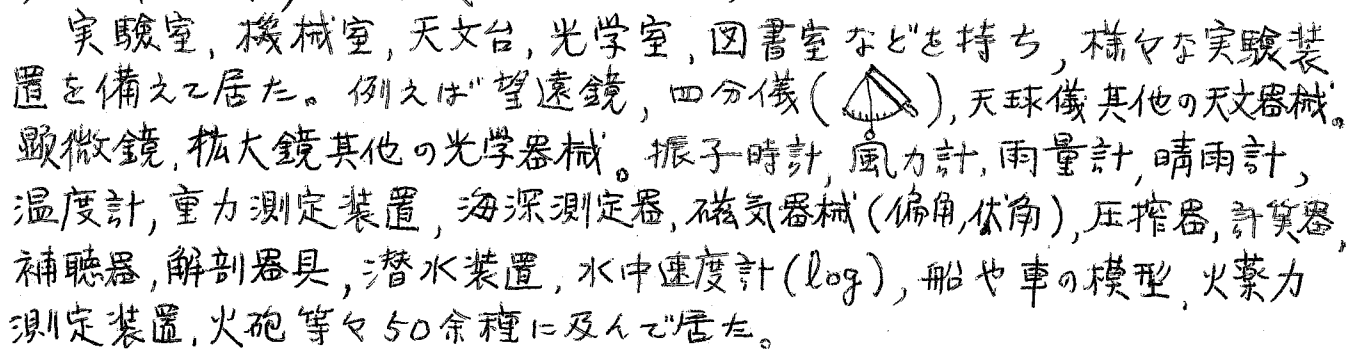 実験室,機械室,天文台,光学室,図書室などを持ち,様々な実験装
置を備えて居た。例えば望遠鏡,四分儀( ),天球儀其他の天文器械。
顕微鏡,拡大鏡其他の光学器械。振子時計,風力計,雨量計,晴雨計,
温度計,重力測定装置,海深測定器,磁気器械(偏角,伏角),圧搾器,計算器,
補聴器,解剖器具,潜水装置,水中速度計(log),船や車の模型,火薬力
測定装置,火砲等々50余種に及んで居た。